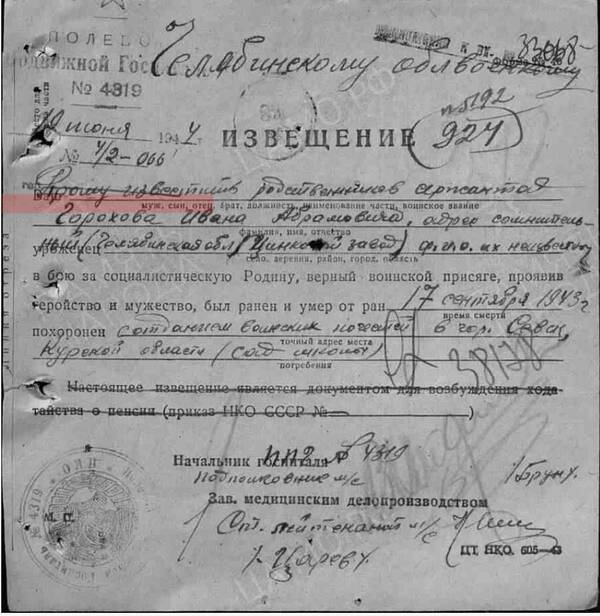 ПОЛЕВО
Подвижной Госп
№ 4319
Челябинскому облвоенкому
к вх.
19 июня 1944 г.
№ 4/2-066
п 5192
ИЗВЕЩЕНИЕ
927
Прошу известить родственников сержанта
муж, сын, отец, брат, должность, наименование части, воинское звание
Горохова Ивана Абрамовича, адрес сомнитель-
фамилия, имя, отчество
ный (Челябинская обл Цинковый завод) ф.и.о. их неизвестно
уроженец
село, деревня, район, город, область
в бою за социалистическую Родину, верный воинской присяге, проявив
геройство и мужество, был ранен и умер от ран 17 сентября 1943 г
время смерти
похоронен с отданием воинских почестей в гор. Севск,
точный адрес места
Курской области
погребения
38178
Настоящее извещение является документом для возбуждения хода-
тайства о пенсии (приказ НКО СССР № )
Начальник госпиталя ППГ № 4319
Подполковник м/с
/Брун/.
Зав. медицинским делопроизводством
Ст. лейтенант м/с
/Царев/.
М. П.
ЦТ НКО. 605—43
линия отреза